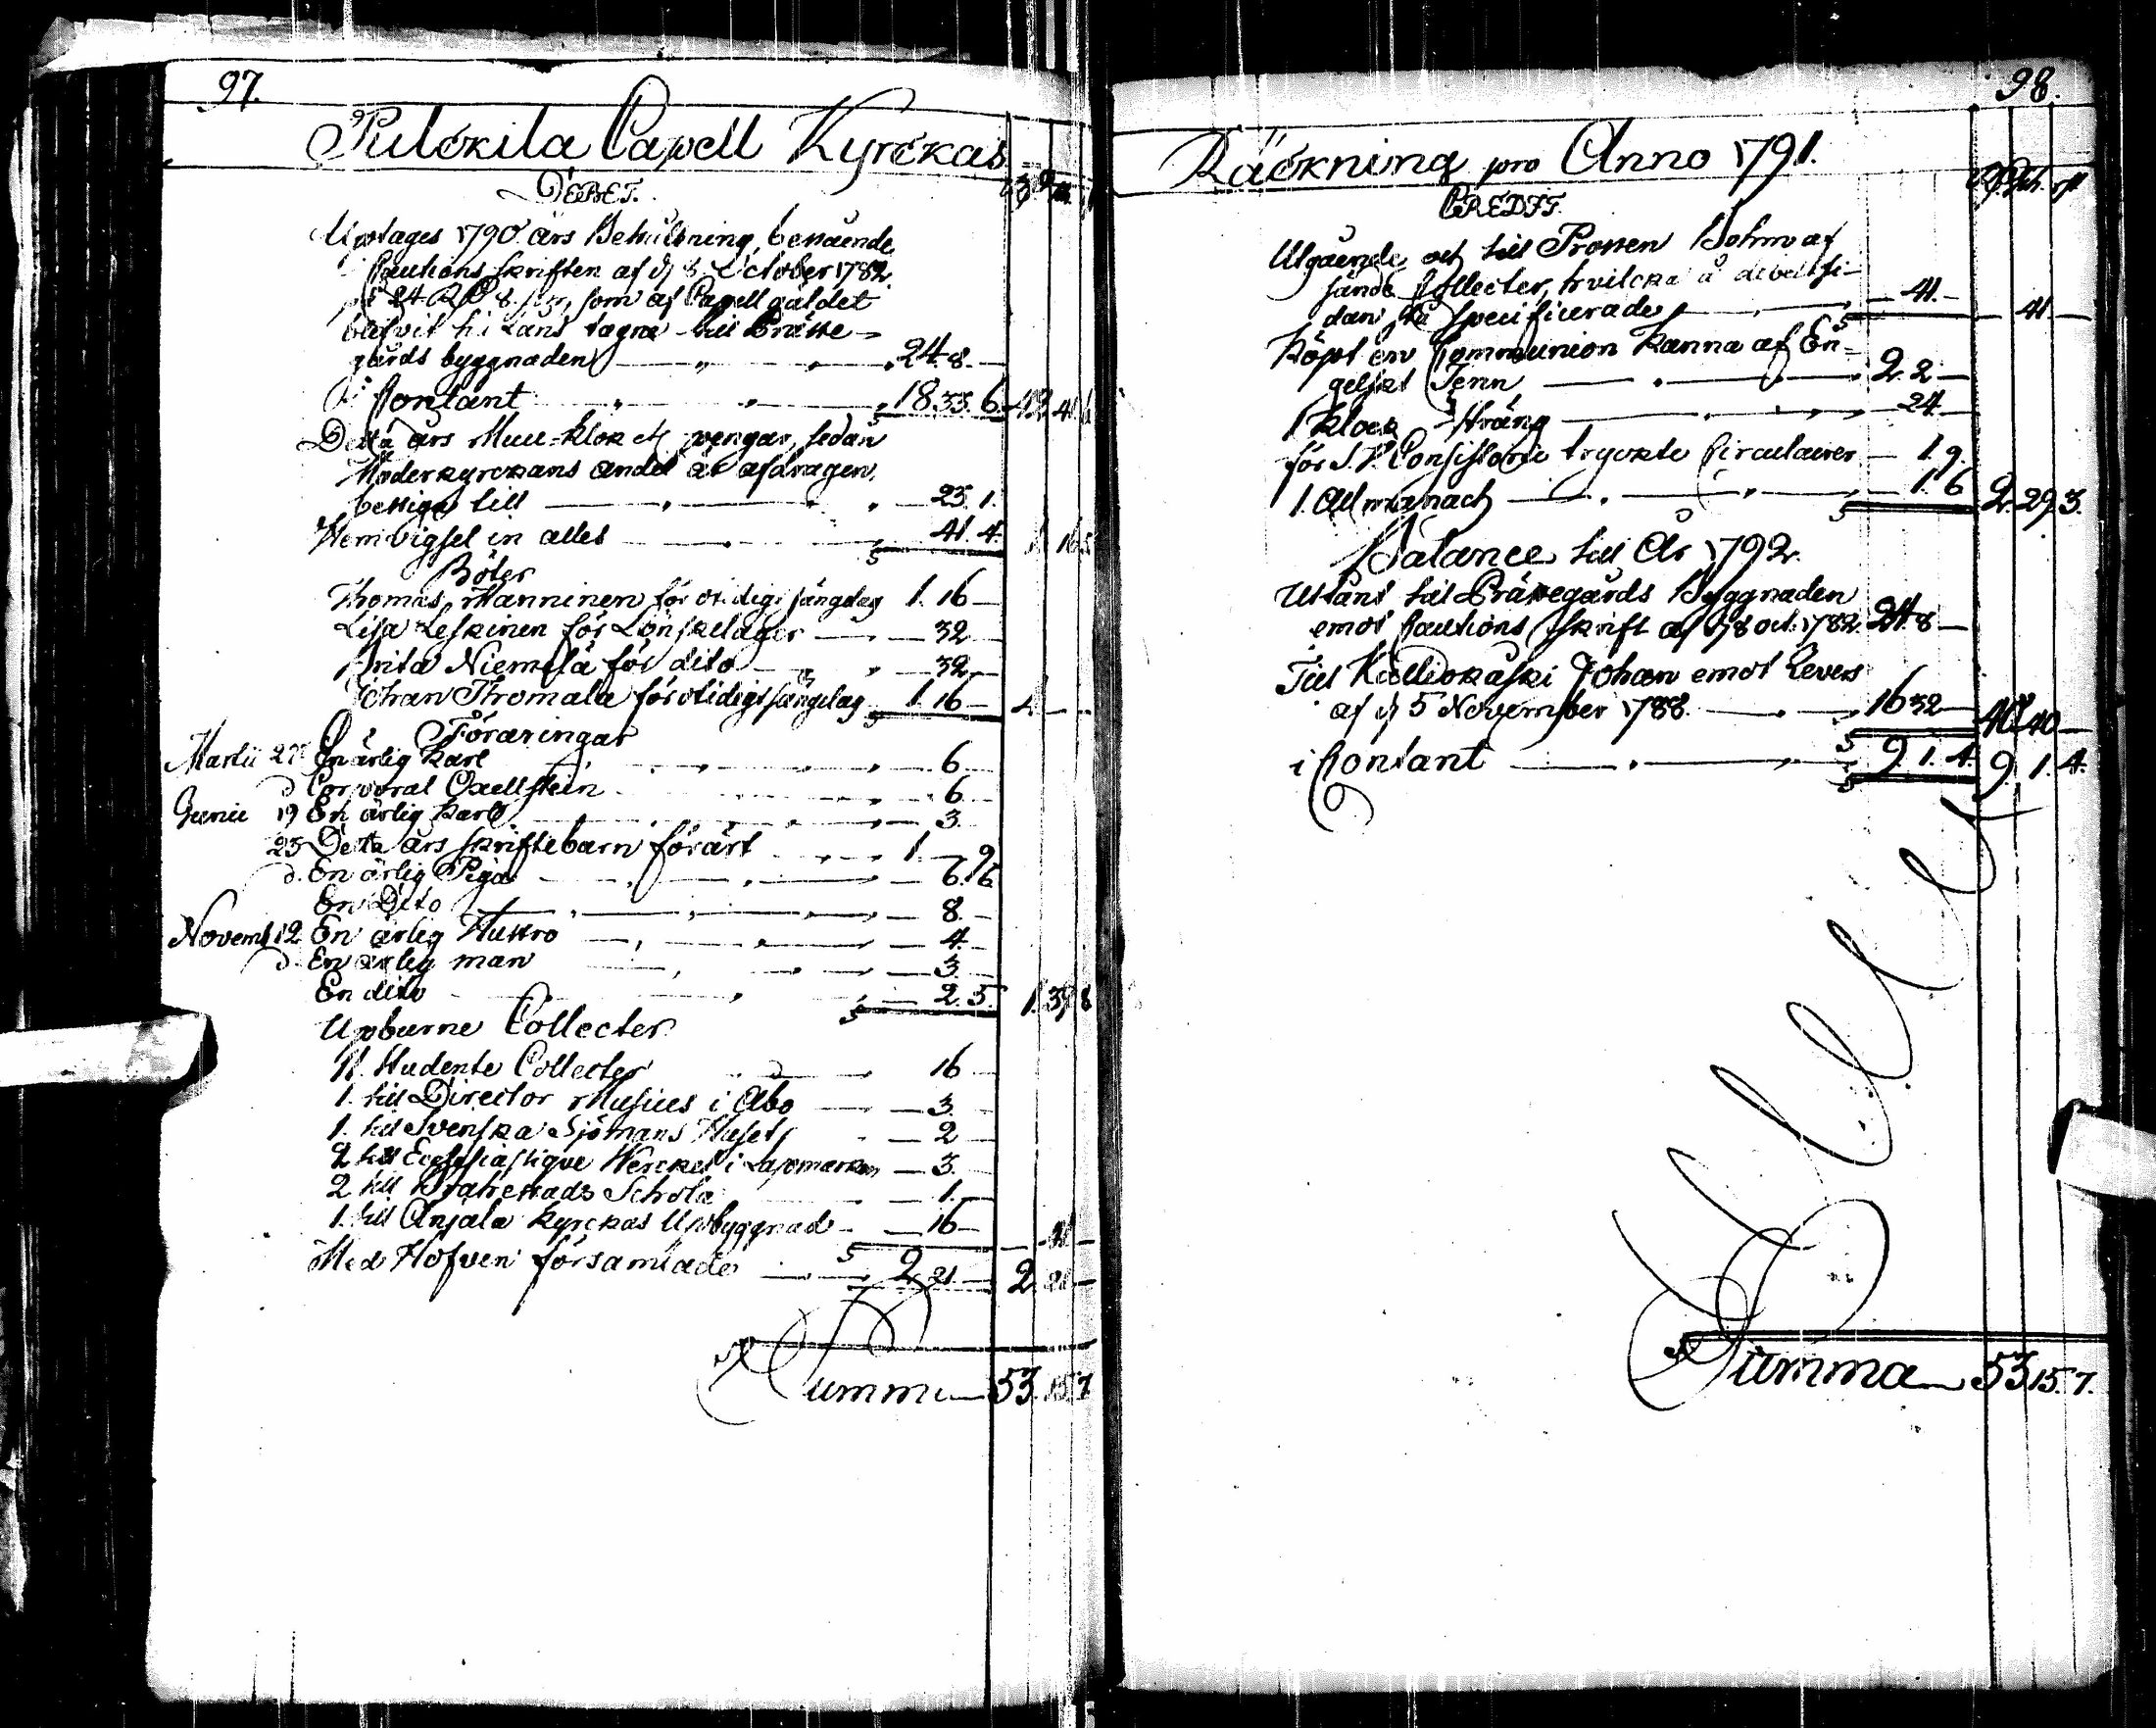 97.
Pulckila Capell Kyrckas
DEBET.
Uptages 1790 års Behållning, bestående
Cautions skriften af d 8 October 1782
på 24 RD 8 som af Capell gäldet
blifvit til Låns tagne till Präste-
gårds byggnaden 24. 8.
Contant 18. 33. 6. 42. 41. 6
Detta års Mull-klock och pengar, sedan
Moderkyrckans andel är afdragen,
bestiga till 23. 1.
Hemvigsel in alles 41. 4. 1. 16. 5
Böter
Thomas Manninen för otidigt sänglag 1. 16
Lisa Leskinen för Lönskelager 32
Brita Niemelä för dito 32
Johan Thomala för otidigt sänglag 1. 16
Föräringar
Martii 27 En ärlig karl 6
d Corporal Oxellstein 6
Junii 19 En ärlig karl 3
23 Detta års skriftebarn förärt 1
d. En ärlig Piga 6. 6
En Dito 8.
Novemb 12 En ärlig Hustro 4.
d. En ärlig man 3.
En dito 2. 5. 1. 39. 8
Upburne Collecter
11. Studente Collecter 16
1. till Director Musices i Åbo 3.
1. till Svenska Sjömans Huset 2
2 till Ecclesiastique Wercket i Lapmarken 3.
2 till Brahestads Schola 1.
1. till Anjala kyrckas Upbyggnad 16 41
Med Hofven församlade 2. 21 2. 21
Summa 53. 15. 7
98.
Räckning pro Anno 1791.
CREDIT.
Utgående och till Prosten Bohm af
sände Collecter, hvilcka å debet si-
dan stå specificerade 41. 41.
Köpt en Communion Kanna af En-
gelskt Tenn 2. 2
1 klock sträng 24
för S. V. Consistorii tryckte Circulairer 1. 9.
1. Allmanach 1. 6 2. 29. 3.
Balance till År 1792.
Utlånt till Prästegårds Byggnaden
emot Cautions skrift af d 8 oct. 1782 24. 8
Till Kalliokoski Johan emot Revers
af d 5 November 1788. 16 32 40. 40
i Contant 9. 1. 4. 9. 1. 4.
Summa 53. 15. 7.